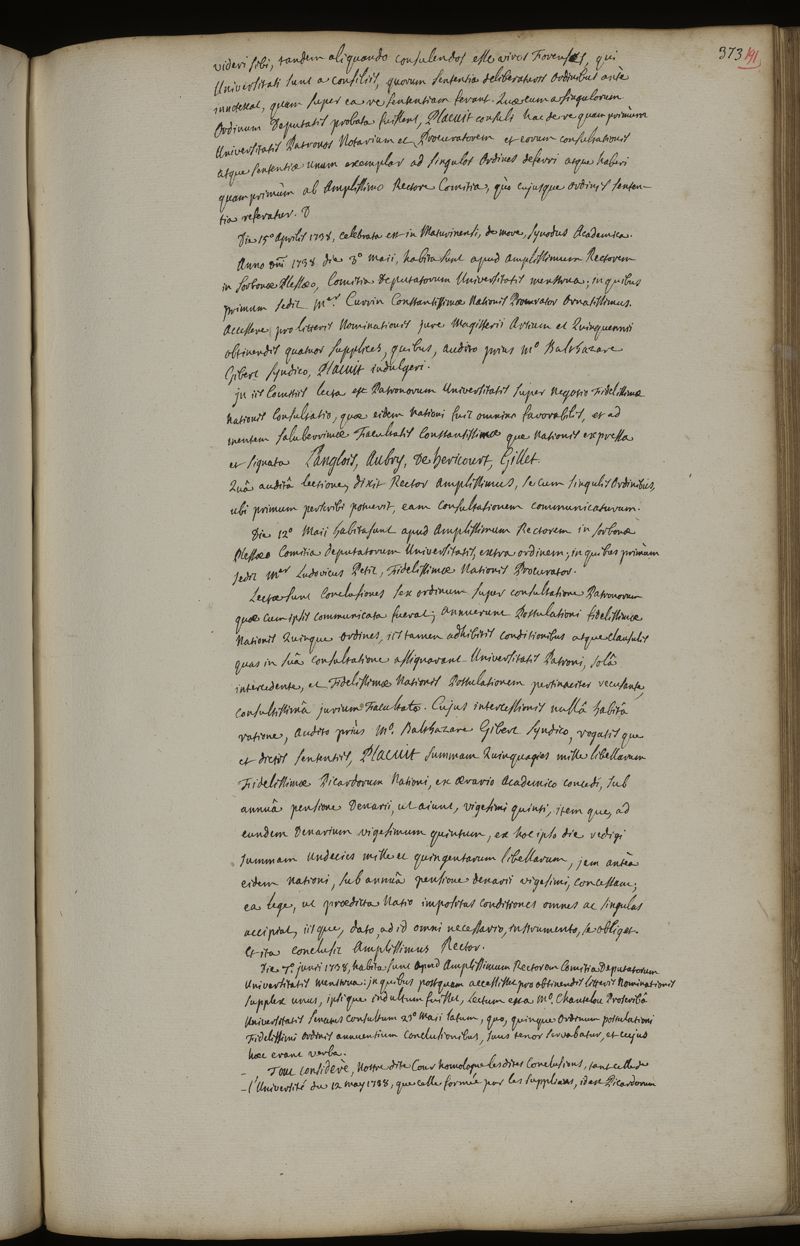 373 191
videri sibi, tandem aliquando consulendos esse viros Forenses, qui
Universitati sunt a consiliis, quorum sententia deliberaturis Ordinibus antè
innotescat, quam super ea re sententiam ferant. Quæ cum a singulorum
Ordinum Deputatis probata fuissent, Placuit consuli hac de re quam primùm
Universitatis Patronos Notarium et Procuratorem et eorum consultationis
atque sententiæ unum exemplar ad singulos Ordines deferri atque haberi
quam primùm ab Amplissimo Rectore Comitia, quò cujusque Ordinis senten-
tia referatur.
Die 15º Aprilis 1738, celebrata est in Maturinensi, de more, synodus Academica.
Anno Dni 1738 die 3º Maii, habita sunt apud amplissimum Rectorem
in Sorbonæ Plessæo, Comitia Deputatorum Universitatis menstrua; in quibus
primum sedit Mer. Cuvvin Constantissimæ Nationis Procurator Ornatissimus.
Accessere pro litteris Nominationis jure Magisterii Artium et Quinquennii
obtinendis quatuor supplices, quibus, audito prius Mº Balthazare
Gibert syndico, Placuit indulgeri.
In iis Comitiis lecta est Patronorum Universitatis super negotio Fidelissimæ
Nationis Consultatio, quæ eidem Nationi fuit omnino favorabilis, et ad
mentem saluberrimæ Facultatis Constantissimæ que Nationis expressa
et signata Langlois, Aubry, De hericourt, Gillet.
Quâ auditâ lectione, dixit Rector Amplissimus, se cum singulis Ordinibus,
ubi primum perscribi potuerit, eam Consultationem communicaturum.
Die 12º Maii habita sunt apud Amplissimum Rectorem in Sorbonæ
Plessæo Comitia Deputatorum Universitatis, extra ordinem; in quibus primùm
sedit Mer Ludovicus Petit, Fidelissimæ Nationis Procurator.
Lectæ sunt Conclusiones sex ordinum super consultatione Patronorum
quæ cum ipsis communicata fuerat; annuerunt Postulationi fidelissimæ
Nationis Quinque Ordines, iis tamen adhibitis conditionibus atque clausulis
quas in suâ consultatione assignarant Universitatis Patroni, solâ
intercedente, et Fidelissimæ Nationis Postulationem pertinaciter recusante,
Consultissimâ jurium Facultate. Cujus intercessionis nullâ habitâ
ratione, audito priùs Mº. Balthazare Gibert syndico, rogatis que
et dictis sententiis, Placuit summam Quinquagies mille libellarum
Fidelissimæ Picardorum Nationi, ex ærario Academico concedi, sub
annuâ pensione Denarii, ut aiunt, vigesimi quinti, item que, ad
eundem Denarium vigesimum quintum, ex hoc ipso die redigi
summam undecies mille et quingentarum libellarum, jam anteà
eidem nationi, sub annuâ pensione denarii vigesimi, concessam;
ea lege, ut prædicta Natio impositas conditiones omnes ac singulas
accipiat, iisque, dato, ad id omni necessario, instrumento, se obliget.
Et ita conclusit Amplissimus Rector.
Die 7º. junii 1738, habita sunt apud Amplissimum Rectorem Comitia Deputatorum
Universitatis menstrua: in quibus postquam accessisset pro obtinendis litteris Nominationis
supplex unus, ipsique indultum fuisset, lectum est a Mº. Chanteloue Proscribâ
Universitatis senatus Consultum 23º Maii latum, quo, quinque Ordinum postulationi
Fidelissimi Ordinis annuentium Conclusionibus, suus tenor servabatur, et cujus
hæc erant verba.
- Tout considéré, Nostredite Cour homologue lesdites Conclusions, tant celle de
- l'Université du 12 may 1738, que celle formée par les supplians, id est Picardorum